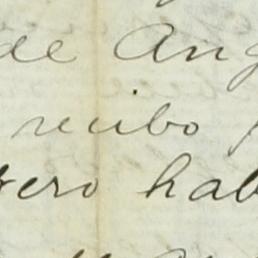 de Ang
recibo
tero hab